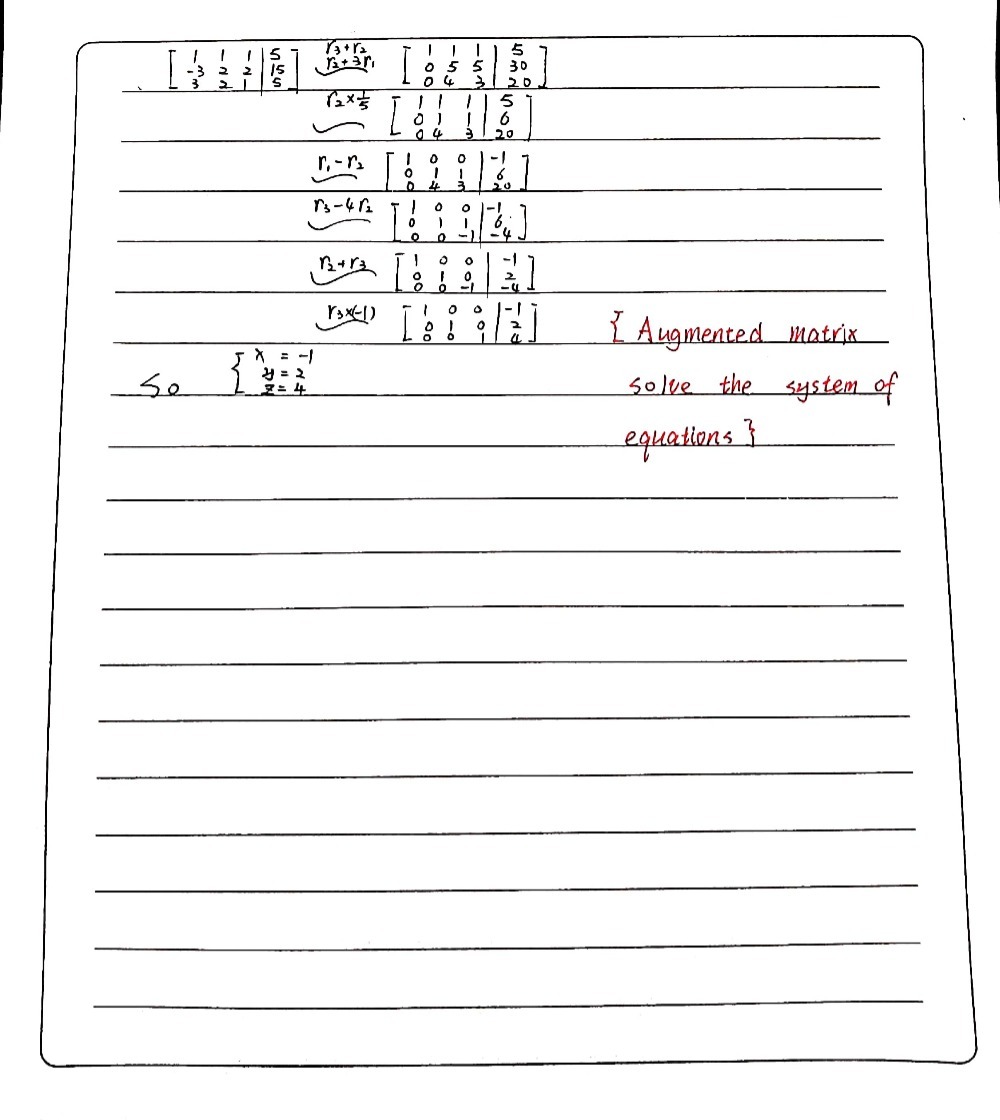 [ 1 1 1 | 5 ] r3+r2 [ 1 1 1 | 5 ]
[ -3 2 2 | 15 ] r2+3r1 [ 0 5 5 | 30 ]
[ 3 2 1 | 5 ] [ 0 4 3 | 20 ]
r2×1/5 [ 1 1 1 | 5 ]
[ 0 1 1 | 6 ]
[ 0 4 3 | 20 ]
r1-r2 [ 1 0 0 | -1 ]
[ 0 1 1 | 6 ]
[ 0 4 3 | 20 ]
r3-4r2 [ 1 0 0 | -1 ]
[ 0 1 1 | 6 ]
[ 0 0 -1 | -4 ]
r2+r3 [ 1 0 0 | -1 ]
[ 0 1 0 | 2 ]
[ 0 0 -1 | -4 ]
r3×(-1) [ 1 0 0 | -1 ]
[ 0 1 0 | 2 ]
[ 0 0 1 | 4 ]
So { x = -1
y = 2
z = 4
{ Augmented matrix
solve the system of
equations }